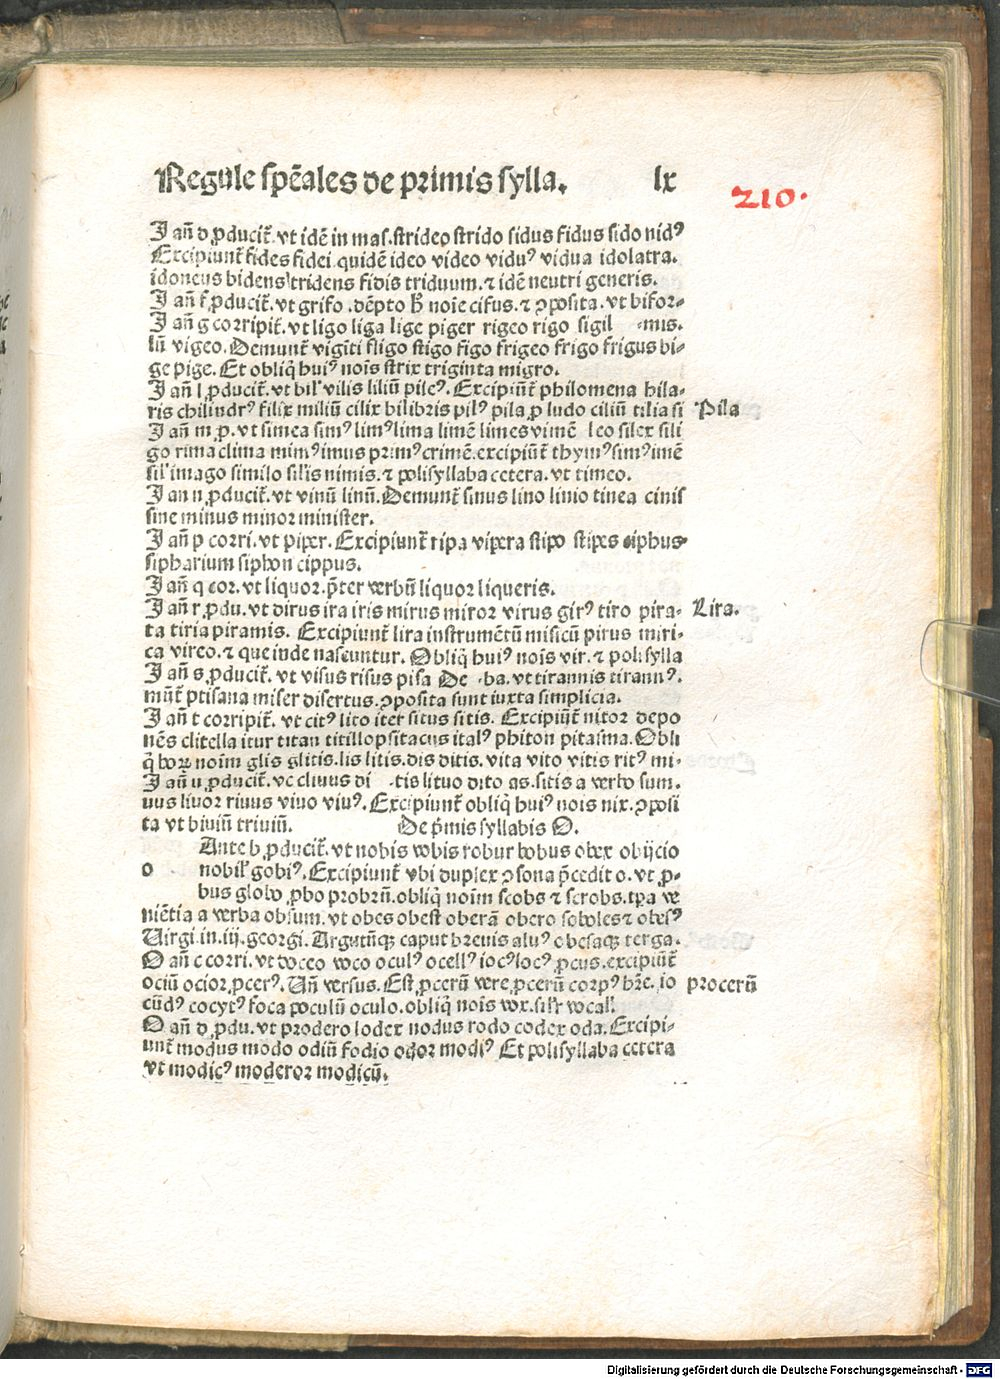 Regule sp̄eales de primis sylla. lx
210.
I an̄ d ꝓducit᷑. vt idē in mas. strideo strido sidus fidus sido nidꝰ
Excipiunt᷑ fides fidei quidē ideo video viduꝰ vidua idolatra.
idoneus bidens tridens fidis triduum. ⁊ idē neutri generis.
I an̄ f ꝓducit᷑. vt grifo. dēpto h̄ noīe cifus. ⁊ ꝯposita. vt bifor-
I an̄ g corripit᷑. vt ligo liga lige piger rigeo rigo sigil -mis.
lū vigeo. Demunt᷑ vigīti fligo stigo figo frigeo frigo frigus bi-
ge pige. Et obliq̄ huiꝰ nois strix triginta migro.
I an̄ l ꝓducit᷑. vt bil᷑ vilis liliū pileꝰ. Excipiūt᷑ philomena hila-
ris chilindrꝰ filix miliū cilix bilibris pilꝰ pila ꝓ ludo ciliū tilia si Pila
I an̄ m ꝓ. vt simea simꝰ limꝰ lima limē limes vimē leo silex sili
go rima clima mimꝰ imus primꝰ crimē. excipiūt᷑ thymꝰ simꝰ imē
sil᷑ imago similo sil᷑is nimis. ⁊ polisyllaba cetera. vt timeo.
I an̄ n ꝓducit᷑. vt vinū linū. Demunt᷑ sinus lino linio tinea cinis
sine minus minor minister.
I an̄ p corri. vt piper. Excipiunt᷑ ripa vipera stipo stipes siphus
sipharium siphon cippus.
I an̄ q cor. vt liquor. p̄ter verbū liquor liqueris.
I an̄ r ꝓdu. vt dirus ira iris mirus miror virus girꝰ tiro pira- Lira.
ta tiria piramis. Excipiunt᷑ lira instrumētū misicū pirus miri-
ca vireo. ⁊ que inde nascuntur. Obliq̄ huiꝰ nois vir. ⁊ polisylla
I an̄ s ꝓducit᷑. vt visus risus pisa De -ba. vt tirannis tirannꝰ.
mūt᷑ ptisana miser disertus. ꝯposita sunt iuxta simplicia.
I an̄ t corripit᷑. vt citꝰ lito iter situs sitis. Excipiūt᷑ nitor depo
nēs clitella itur titan titillo psitacus italꝰ phiton pitasma. Obli
q̄ hoꝝ noīm glis glitis. lis litis. dis ditis. vita vito vitis ritꝰ mi-
I an̄ u ꝓducit᷑. vt cliuus di -tis lituo dito as. sitis a verbo sum.
uus liuor riuus viuo viuꝰ. Excipiunt᷑ obliq̄ huiꝰ nois nix. ꝯposi
ta vt biuiū triuiū. De p̄mis syllabis O.
Ante b ꝓducit᷑. vt nobis vobis robur bobus obex obijcio
o nobil᷑ gobiꝰ. Excipiunt᷑ vbi duplex ꝯsona p̄cedit o. vt ꝓ-
bus globo ꝓbo probrū. obliq̄ noīm scobs ⁊ scrobs. tp̄a ve
niētia a verba obsum. vt obes obest oberā obero soboles ⁊ obesꝰ
Virgi. in. iij. georgi. Argutūqꝫ caput breuis aluꝰ obesaqꝫ terga.
O an̄ c corri. vt doceo voco oculꝰ ocellꝰ iocꝰ locꝰ ꝓcus. excipiūt᷑
ociū ocior ꝓcerꝰ. Un̄ versus. Est ꝓcerū vere ꝓcerū corpꝰ hr̄e. io procerū
cūdꝰ cocytꝰ foca poculū oculo. obliq̄ nois vox. sil᷑r vocal᷑.
O an̄ d ꝓdu. vt prodero lodex nodus rodo codex oda. Excipi-
unt᷑ modus modo odiū fodio odor modiꝰ Et polisyllaba cetera
vt modicꝰ moderor modicū.
Digitalisierung gefördert durch die Deutsche Forschungsgemeinschaft - DFG